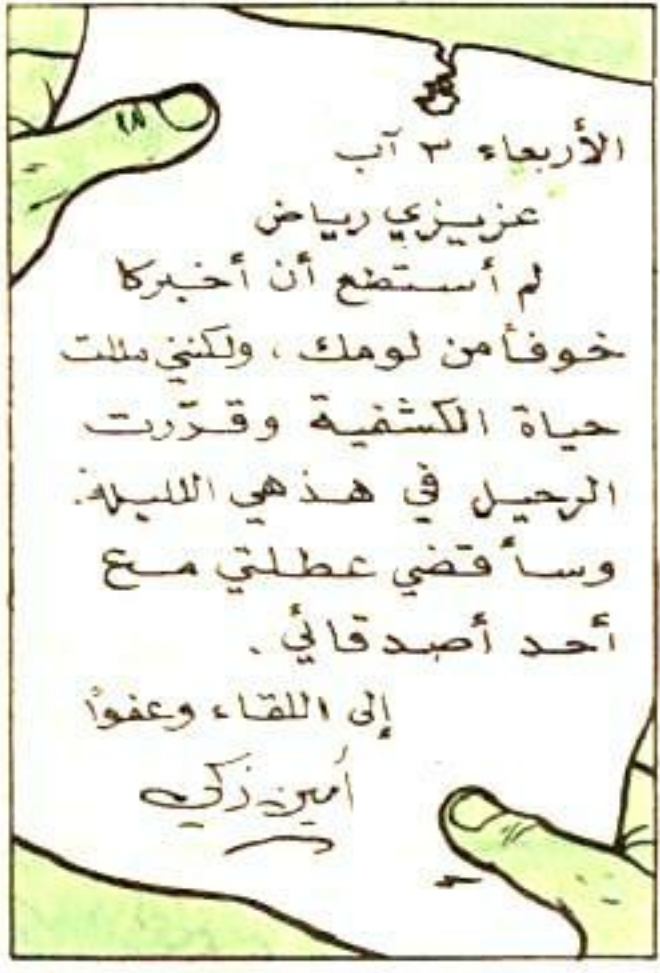 الأربعاء ٣ آب
عزيزي رياض
لم أستضع أن أخبركا
خوفاً من لومك ، ولكنني مللت
حياة الكشفية وقرّرت
الرحيل في هذهي اللليلة.
وسأقضي عطلتي مع
أحد أصدقائي .
إلى اللقاء وعفواً
أمين زكي